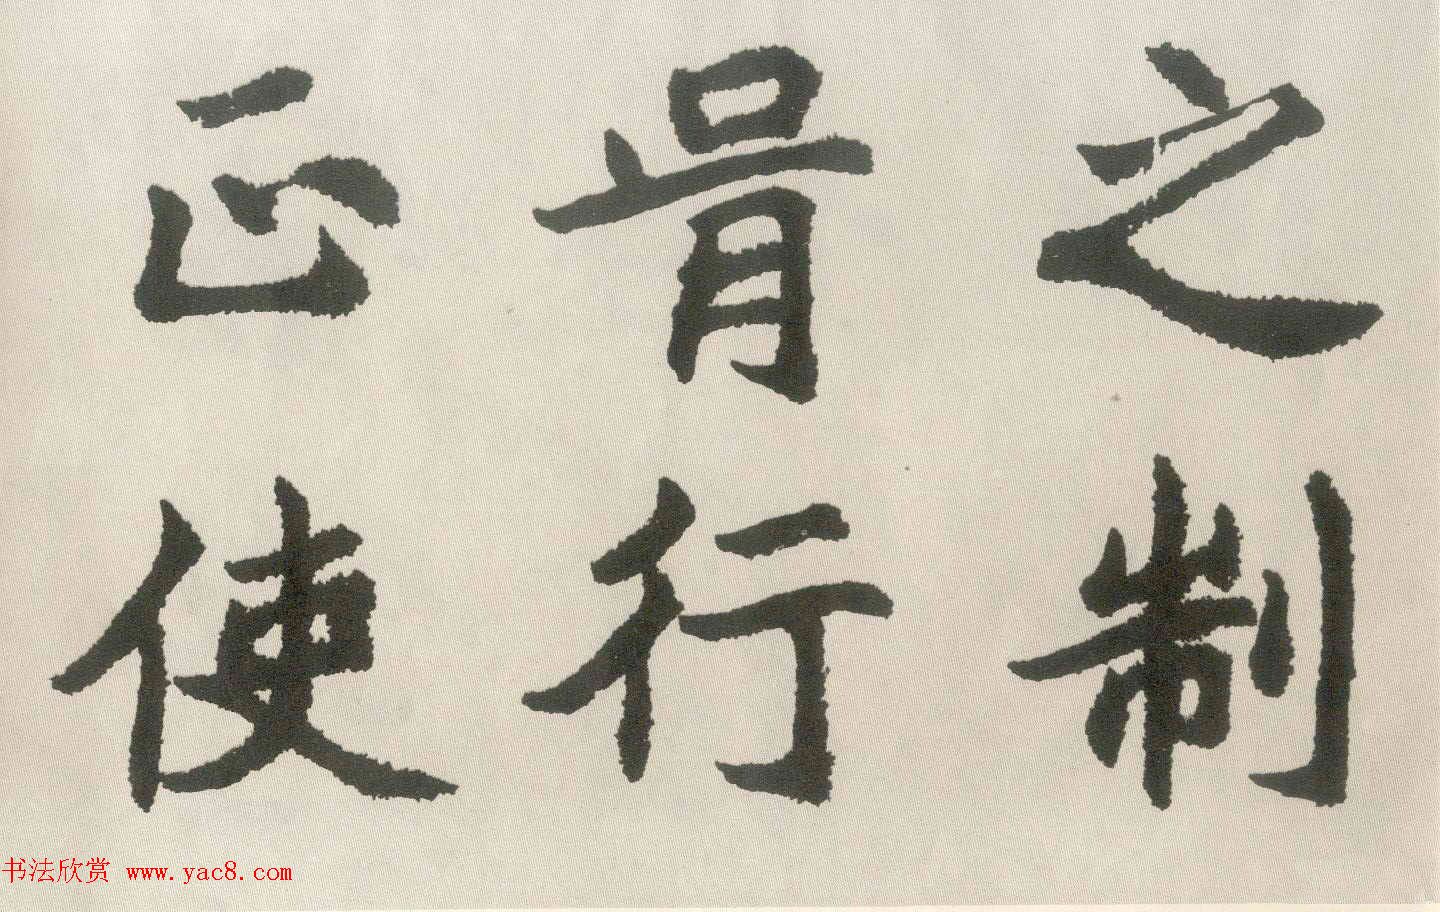 之制
骨行
正使
书法欣赏 www.yac8.com